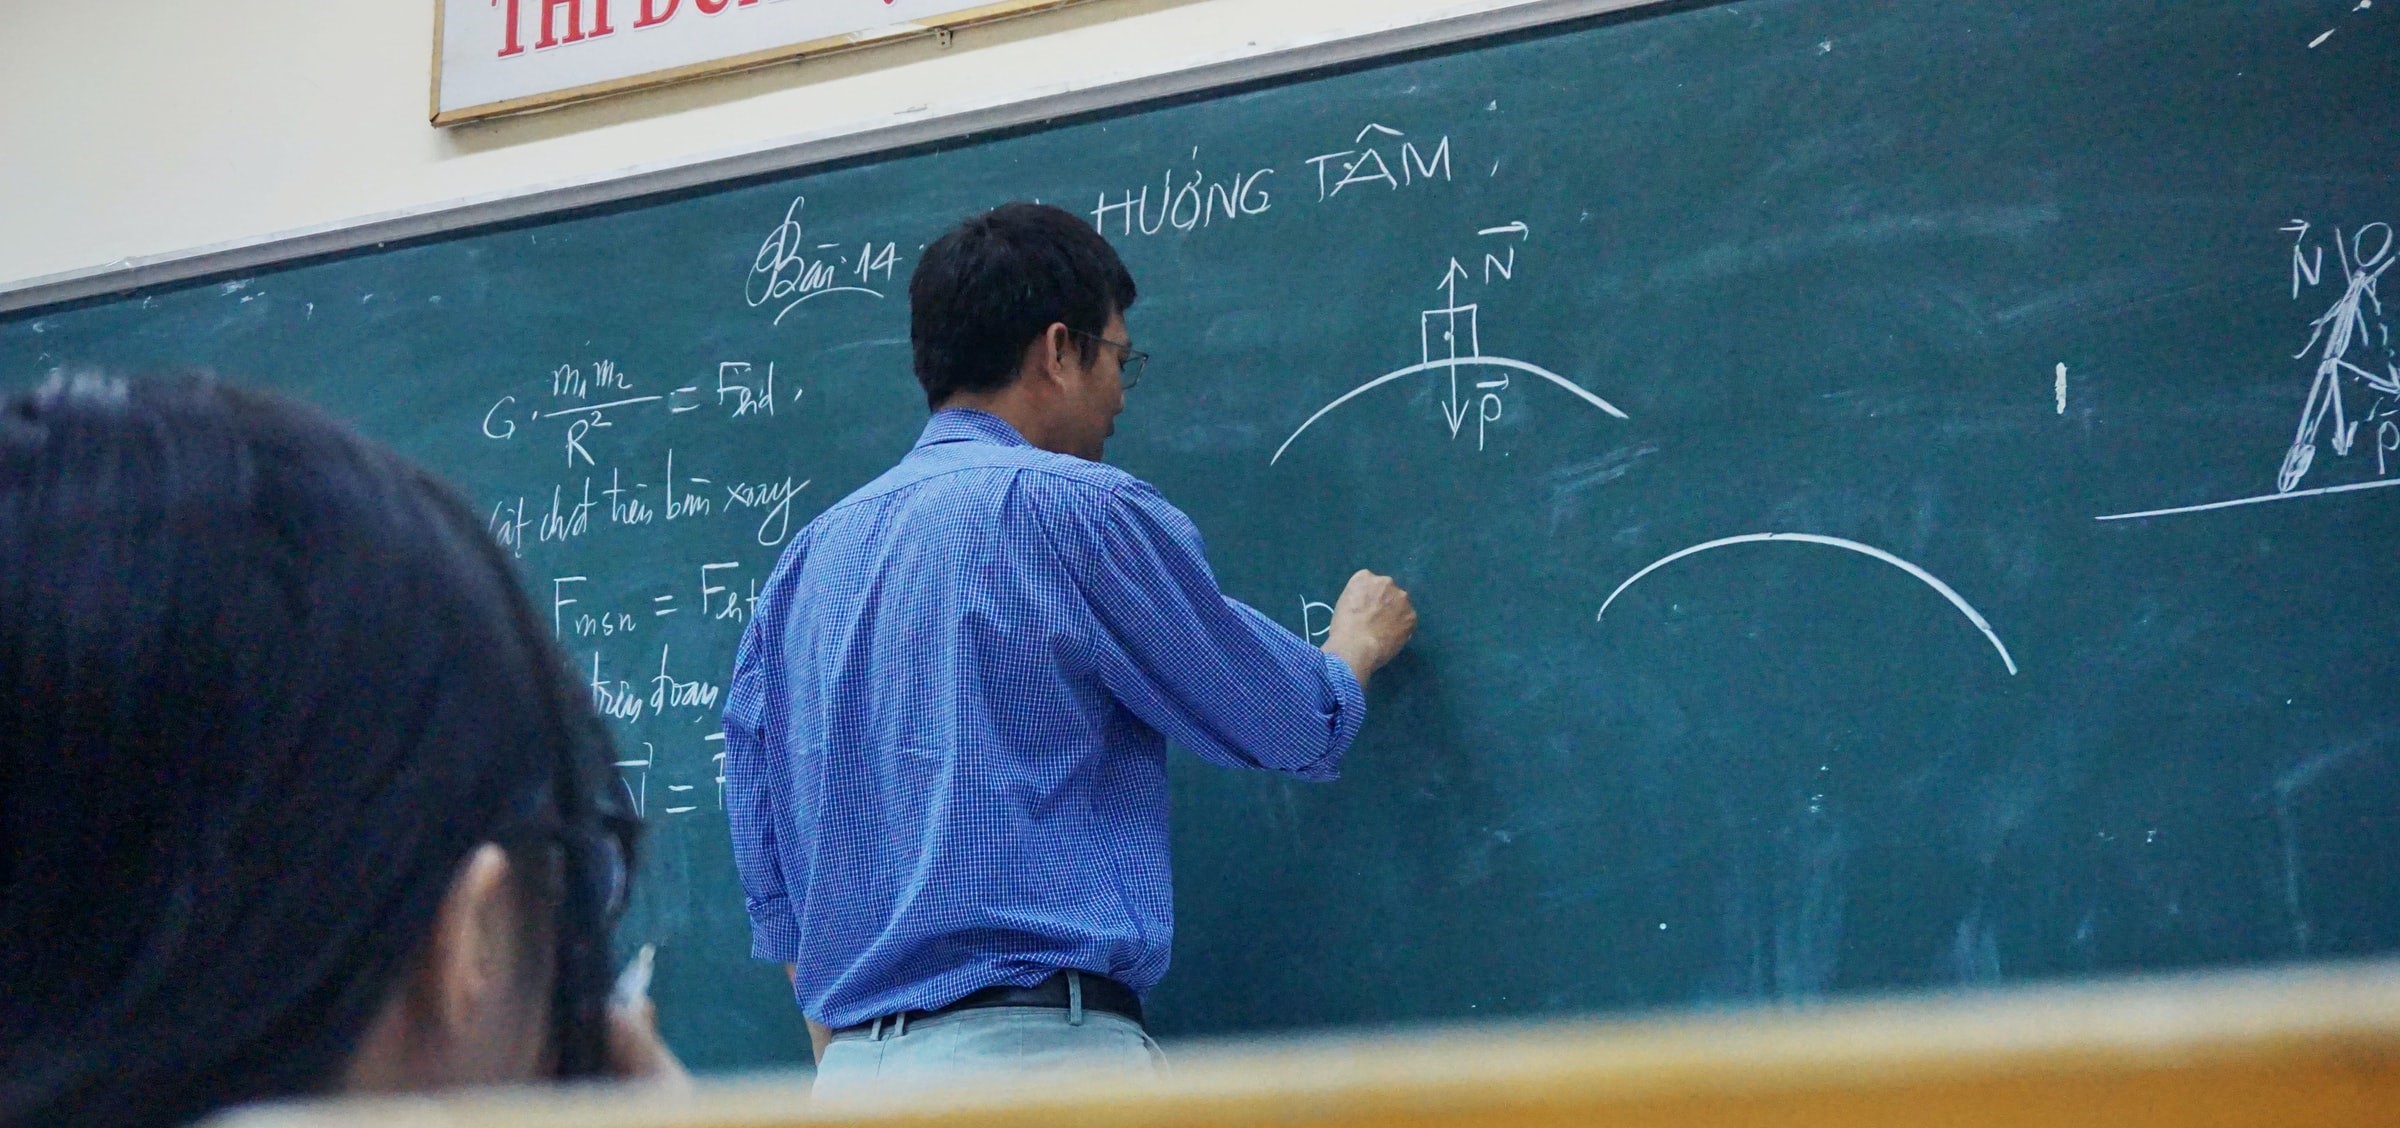 THI
Bài 14
HƯỚNG TÂM
G. m₁m₂/R² = Fhd
N
P
N
P
trên bàn xoay
Fmsn = Fht
trên đoạn
N =
P